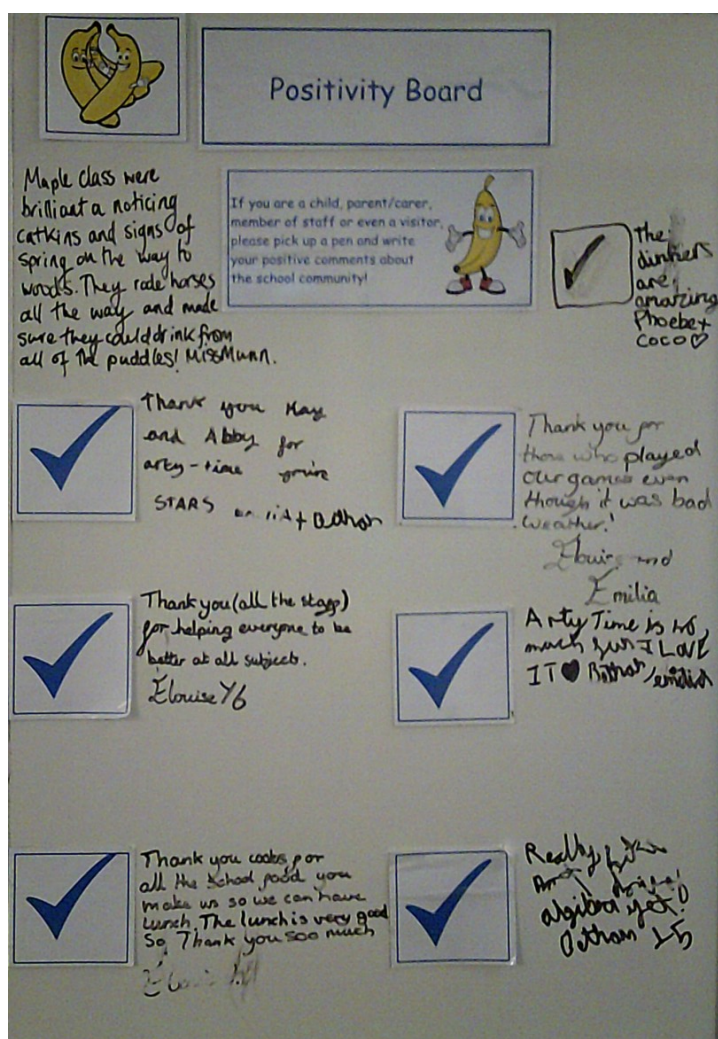 Positivity Board
Maple class were
brilliant a noticing
catkins and signs of
spring on the way to
woods. They rode horses
all the way and made
sure they could drink from
all of the puddles! Miss Munn.
If you are a child, parent/carer,
member of staff or even a visitor,
please pick up a pen and write
your positive comments about
the school community!
The
dinners
are
amazing
Phoebe +
COCO♡
Thank you May
and Abby for
arty-time you're
STARS
Thank you for
those who played
our games even
though it was bad
weather!
Elouise and
Emilia
Thank you (all the staff)
for helping everyone to be
better at all subjects.
Elouise Y6
Arty Time is so
much fun I LOVE
IT ♥ /emilia
Thank you cooks for
all the school food you
make us so we can have
Lunch. The lunch is very good
So, Thank you soo much
Really
algibra yet!